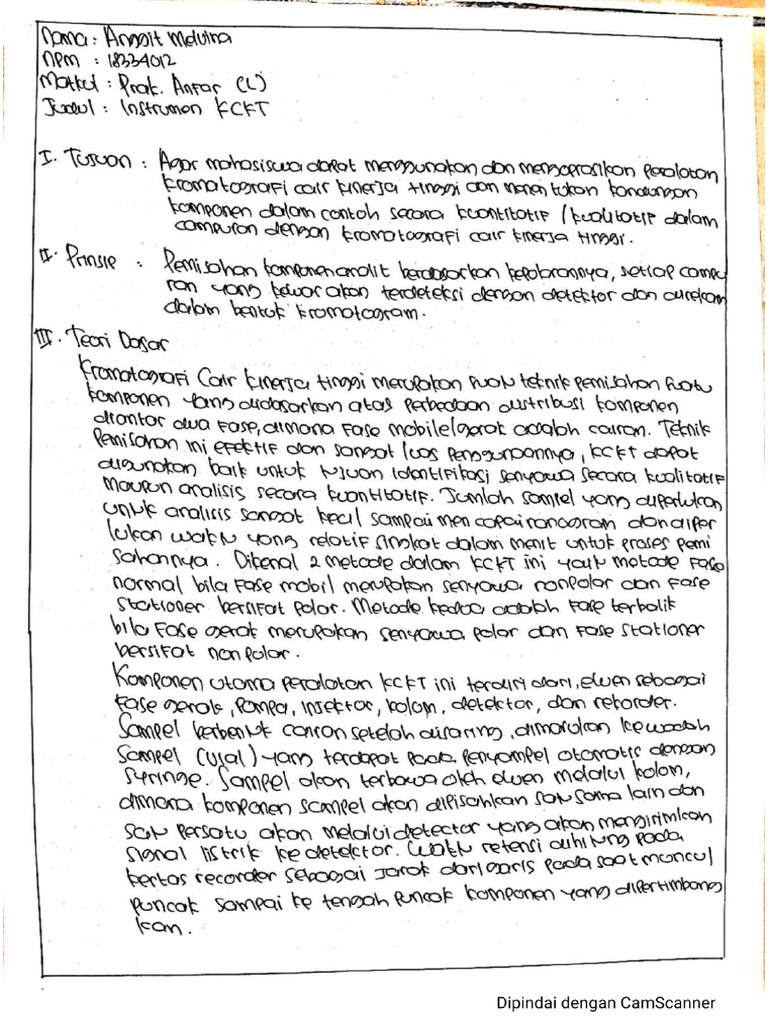 Nama : Anggit Melvina
NPM : 18334012
Matkul : Prak. Anfar (L)
Judul : Instrumen KCKT
I. Tujuan : Agar mahasiswa dapat menggunakan dan mengoprasikan peralatan
kromatografi cair kinerja tinggi dan menentukan kandungan
komponen dalam contoh secara kuantitatif / kualitatif dalam
campuran dengan kromatografi cair kinerja tinggi.
II. Prinsip : Pemisahan komponen analit berdasarkan kepolarannya, setiap campu
ran yang keluar akan terdeteksi dengan detektor dan direkam
dalam bentuk kromatogram.
III. Teori Dasar
Kromatografi Cair Kinerja tinggi merupakan suatu teknik pemisahan suatu
komponen yang didasarkan atas perbedaan distribusi komponen
diantar dua fase, dimana fase mobile/gerak adalah cairan. Teknik
pemisahan ini efektif dan sangat luas penggunaannya, KCKT dapat
digunakan baik untuk tujuan identifikasi senyawa secara kualitatif
maupun analisis secara kuantitatif. Jumlah sampel yang diperlukan
untuk analisis sangat kecil sampai mencapai nanogram dan diper
lukan waktu yang relatif singkat dalam menit untuk proses pemi
sahannya. Dikenal 2 metode dalam KCKT ini yaitu metode fase
normal bila fase mobil merupakan senyawa nonpolar dan fase
stationer bersifat polar. Metode kedua adalah fase terbalik
bila fase gerak merupakan senyawa polar dan fase stationer
bersifat non polar.
Komponen utama peralatan KCKT ini terdiri dari, eluen sebagai
fase gerak, pompa, injektor, kolom, detektor, dan rekorder.
Sampel berbentuk cairan setelah disaring, dimasukan ke wadah
sampel (vial) yang terdapat pada penyampel otomatis dengan
syringe. Sampel akan terbawa oleh eluen melalui kolom,
dimana komponen sampel akan dipisahkan satu sama lain dan
satu persatu akan melalui detector yang akan mengirimkan
signal listrik ke detektor. Waktu retensi dihitung pada
kertas recorder sebagai jarak dari garis pada saat muncul
puncak sampai ke tengah puncak komponen yang dipertimbang
kan.
Dipindai dengan CamScanner